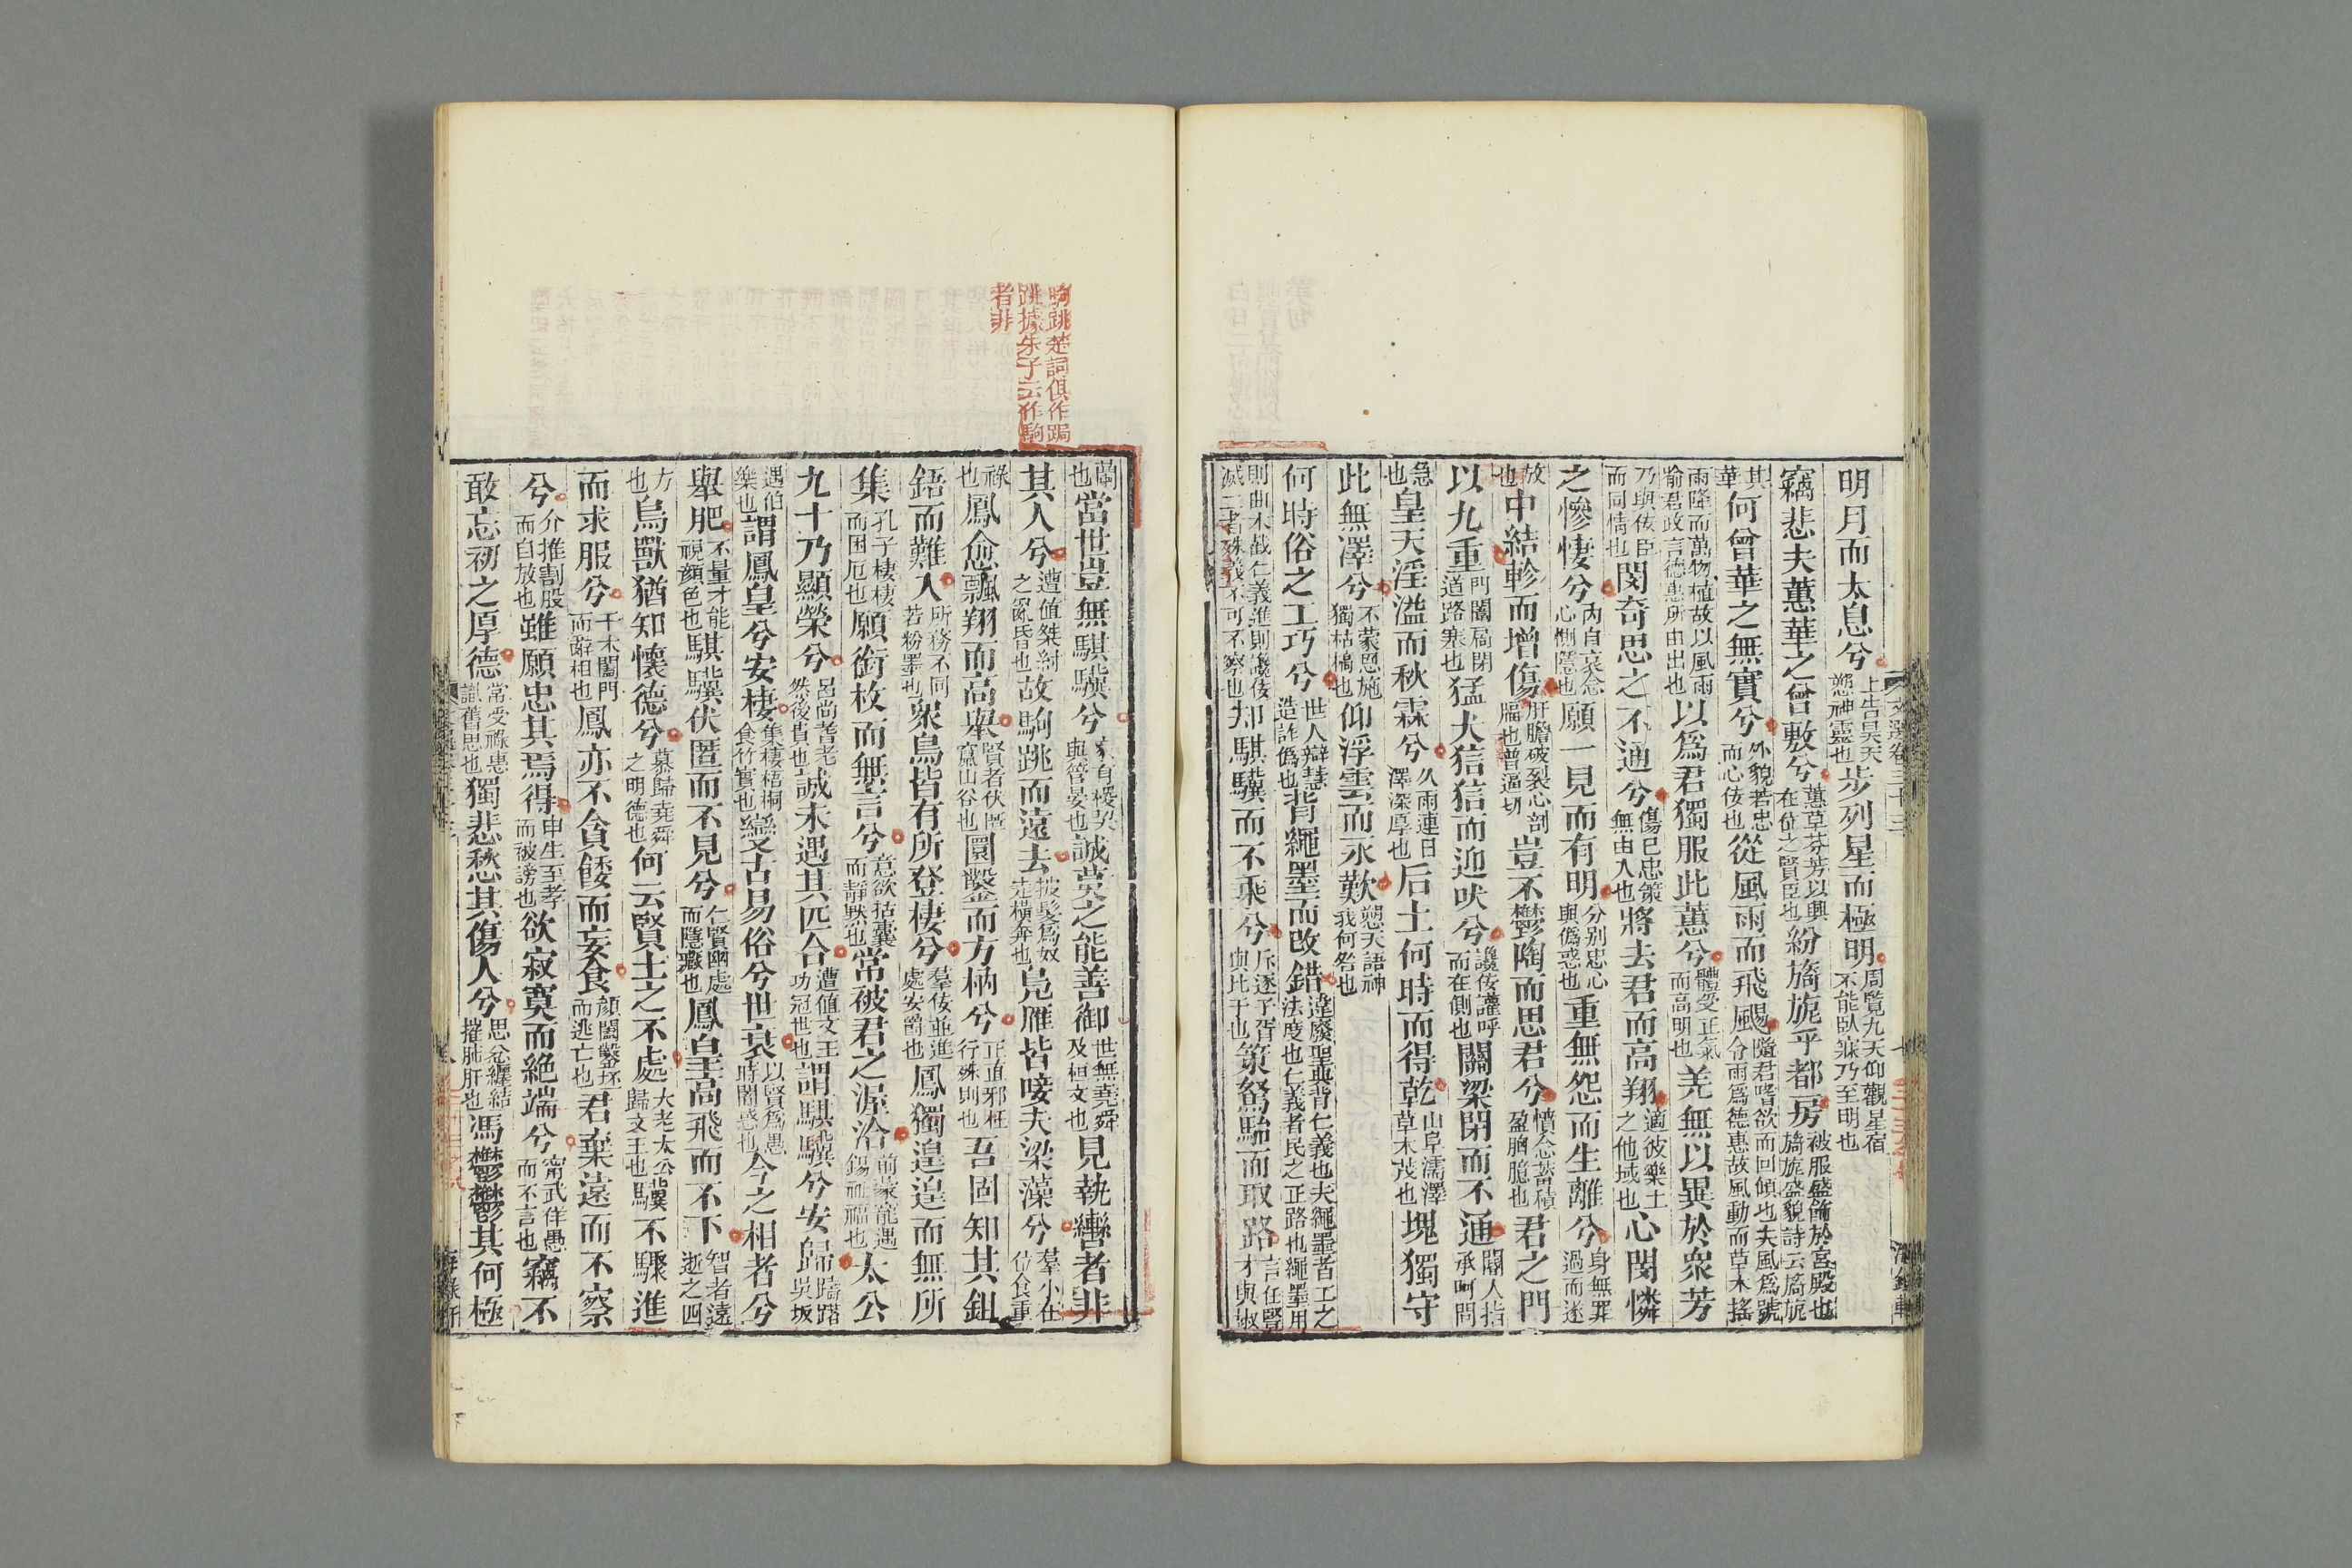 明月而太息兮上告昊天愬神靈也步列星而極明周覽九天仰觀星宿不能臥寐乃至明也
竊悲夫蕙華之曾敷兮蕙草芬芳以興在位之賢臣也紛旖旎乎都房被服盛飾於宮殿也旖旎盛貌詩云旖旎
其華何曾華之無實兮外貌若忠而心佞也從風雨而飛颺隨君嗜欲而回傾也夫風爲號令雨爲德惠故風動而草木搖
雨降而萬物植故以風雨喻君政言德惠所由出也以爲君獨服此蕙兮體受正氣而高明也羌無以異於衆芳
乃與佞臣而同情也閔奇思之不通兮傷已忠策無由入也將去君而高翔適彼樂土之他域也心閔憐
之慘悽兮內自哀念心惻隱也願一見而有明分别忠心與僞惑也重無怨而生離兮身無罪過而遂
放也中結軫而增傷肝膽破裂心剖膈也普逼切豈不鬱陶而思君兮憤念蓄積盈胷臆也君之門
以九重門闈扃閉道路塞也猛犬狺狺而迎吠兮讒佞讙呼而在側也關梁閉而不通閽人指承呵問
急也皇天淫溢而秋霖兮久雨連日澤深厚也后土何時而得乾山阜濡澤草木茂也塊獨守
此無澤兮不蒙恩施獨枯槁也仰浮雲而永歎愬天語神我何咎也
何時俗之工巧兮世人辯慧造詐僞也背繩墨而改錯違廢聖典背仁義也夫繩墨者工之法度也仁義者民之正路也繩墨用
則曲木截仁義進則讒佞滅二者殊義不可不察也却騏驥而不乘兮斥逐子胥與比干也策駑駘而取路言任賢才與椒
文選卷三十三
七
蘭也當世豈無騏驥兮家有稷契與管晏也誠莫之能善御世無堯舜及桓文也見執轡者非
其人兮遭值桀紂之亂昏也故駒跳而遠去被髮爲奴走橫奔也鳧鴈皆唼夫梁藻兮羣小在位食重
祿也鳳愈飄翔而高舉賢者伏匿竄山谷也圜鑿而方枘兮正直邪枉行殊則也吾固知其鉏
鋙而難入所務不同若粉墨也衆鳥皆有所登棲兮羣佞並進處安爵也鳳獨遑遑而無所
集孔子棲棲而困厄也願銜枚而無言兮意欲括囊而靜默也常被君之渥洽前蒙寵遇錫祉福也太公
九十乃顯榮兮呂尚耆老然後貴也誠未遇其匹合遭値文王功冠世也謂騏驥兮安歸躊躇吳坂
遇伯樂也謂鳳皇兮安棲集棲梧桐食竹實也變古易俗兮世衰以賢爲愚時闇惑也今之相者兮
舉肥不量才能視顔色也騏驥伏匿而不見兮仁賢幽處而隱藏也鳳皇高飛而不下智者遠逝之四
方也鳥獸猶知懷德兮慕歸堯舜之明德也何云賢士之不處大老太公歸文王也驥不驟進
而求服兮干木闔門而辭相也鳳亦不貪餧而妄食顔闔鑿坏而逃亡也君棄遠而不察
兮介推割股而自放也雖願忠其焉得申生至孝而被謗也欲寂寞而絶端兮甯武佯愚而不言也竊不
敢忘初之厚德常受祿惠識舊恩也獨悲愁其傷人兮思念纏結摧肺肝也馮鬱鬱其何極
駒跳楚詞俱作跼
跳據朱子云作駒
者非